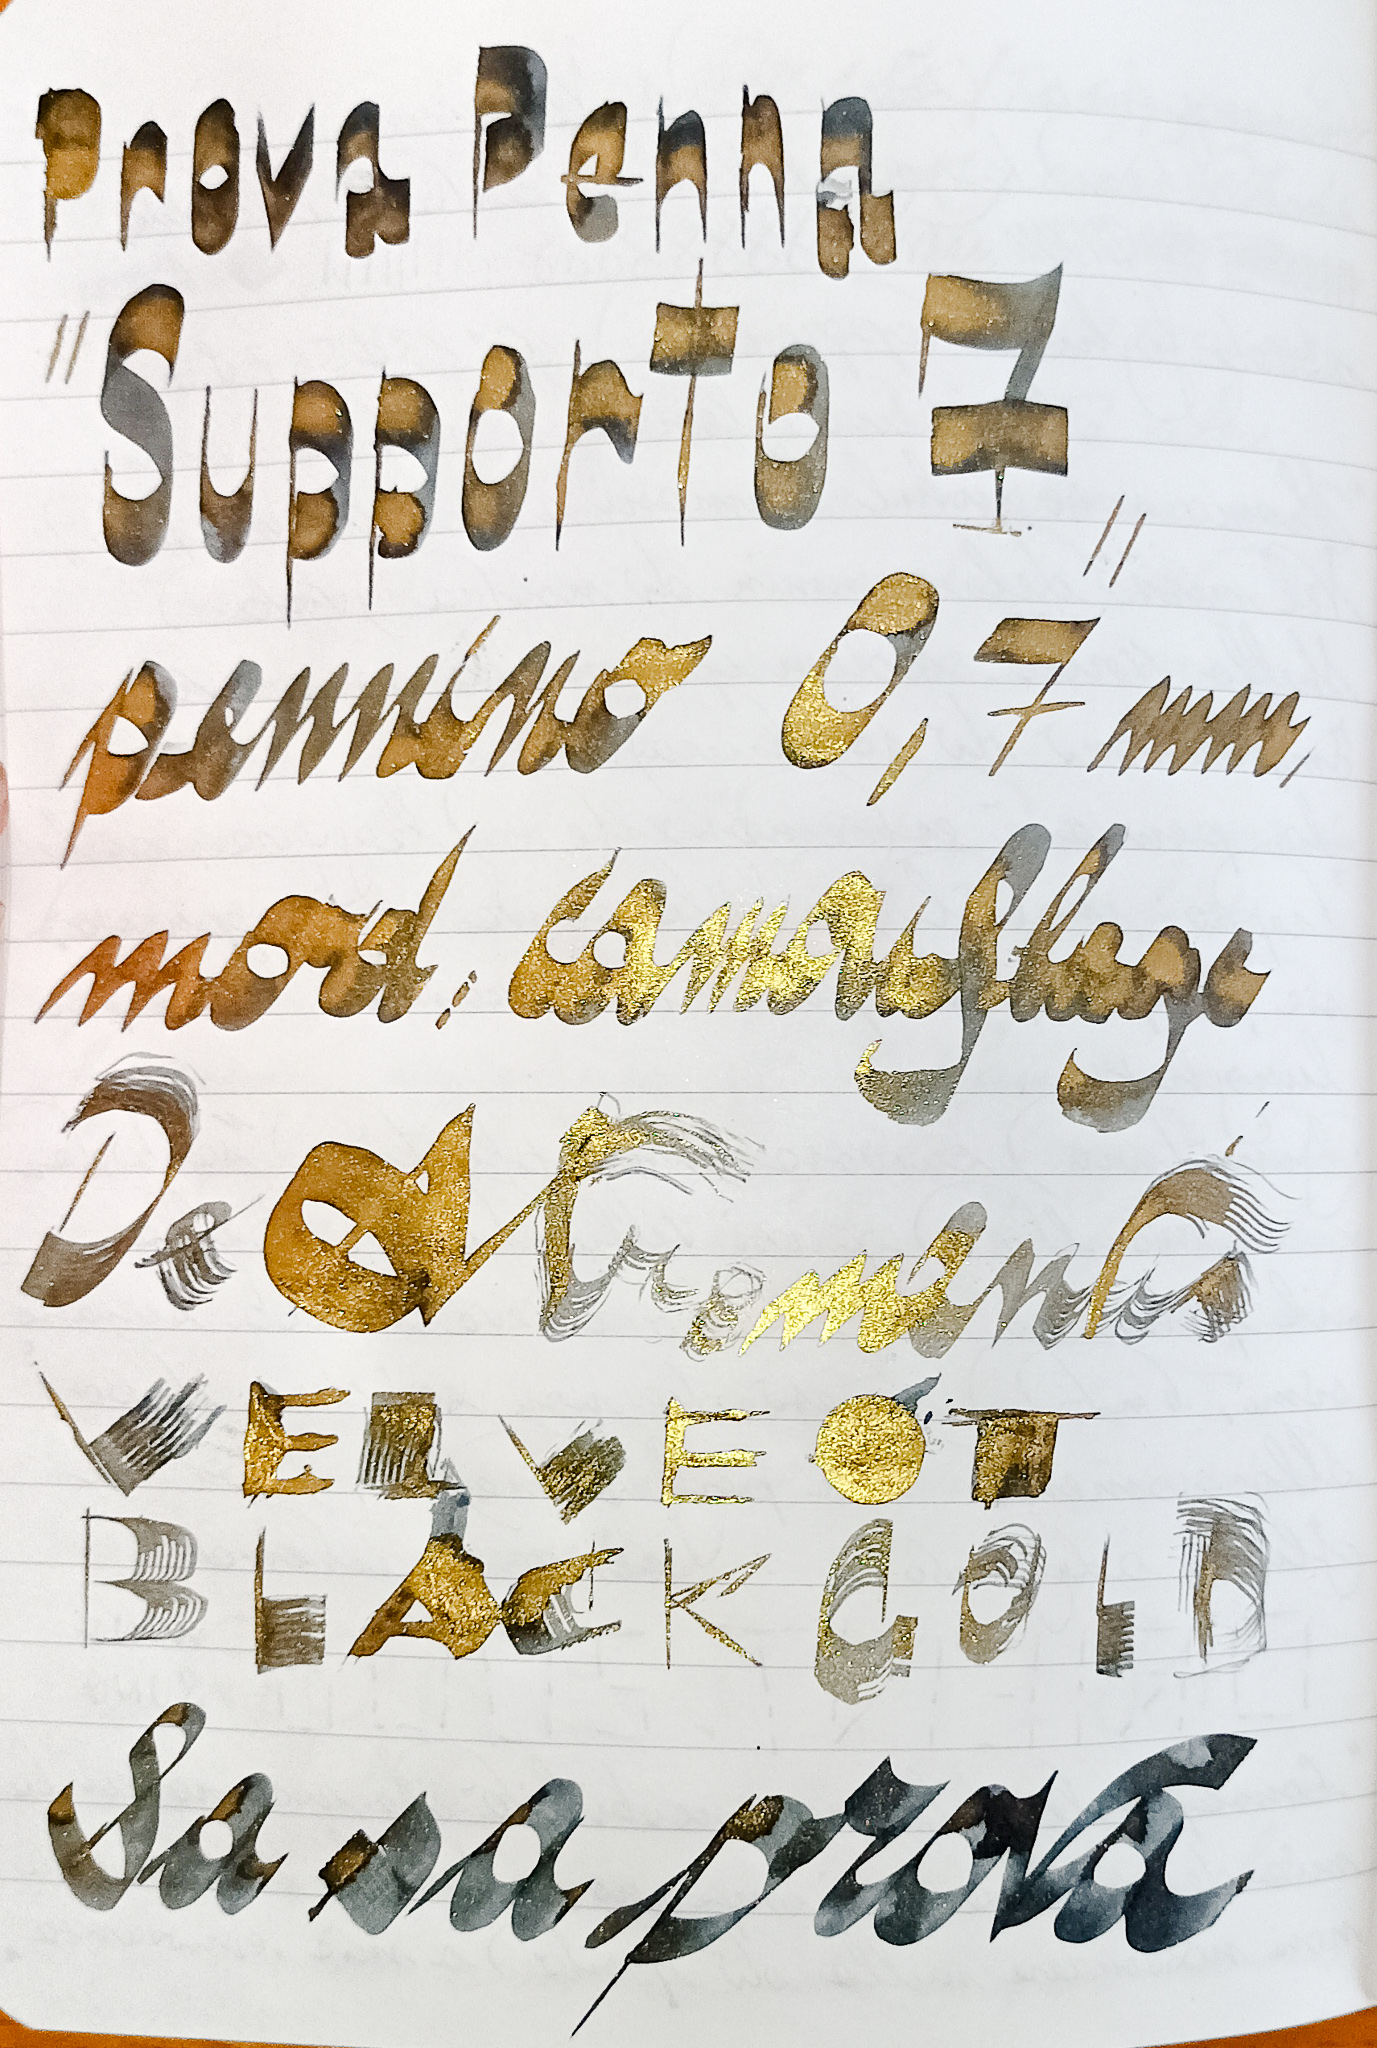 Prova Penna
"Supporto 7"
pennino 0,7 mm,
mod: camouflage
De Atramentis
VELVEOT
BLACK GOLD
Sa sa prova